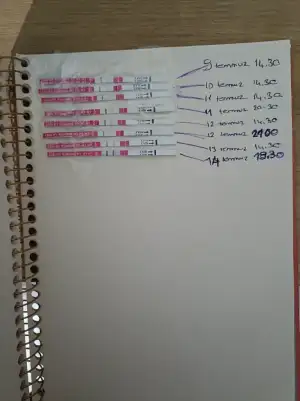 9 temmuz 14.30
10 temmuz 14.30
11 temmuz 14.30
11 temmuz 20.30
12 temmuz 14.30
12 temmuz 21.00
13 temmuz 14.30
14 temmuz 19.30